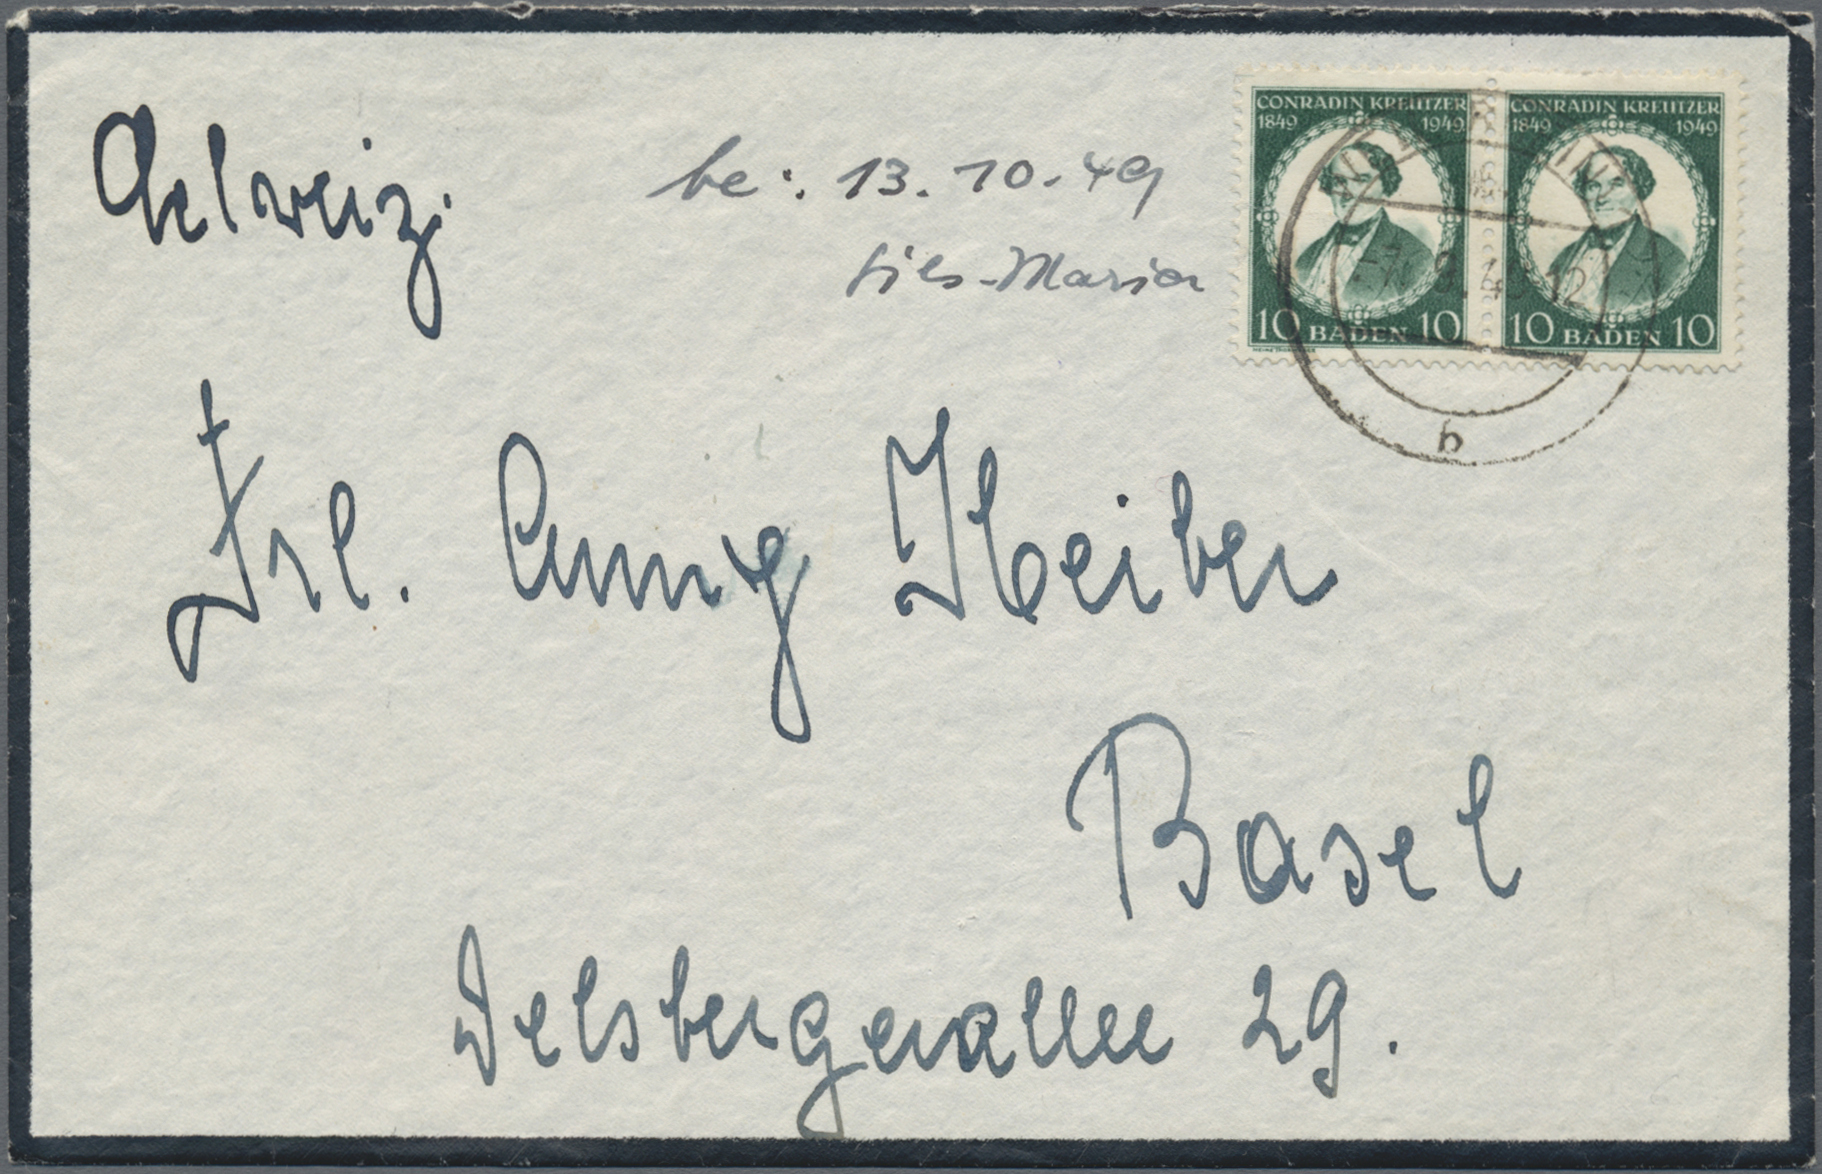 Schweiz.
be: 13.10.49
Sils-Maria
CONRADIN KREUTZER CONRADIN KREUTZER
1849 1949 1849 1949
10 BADEN 10 10 BADEN 10
b
Frl. Anny Heiber
Basel
Delsbergerallee 29.